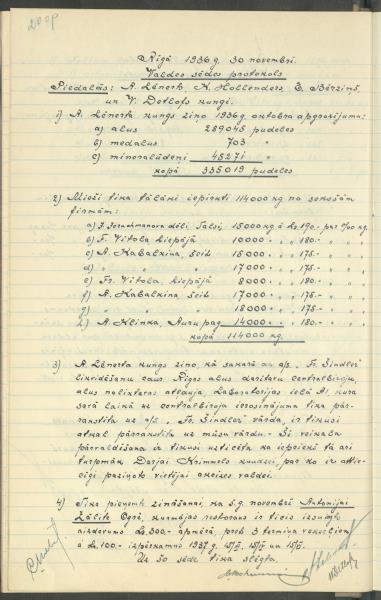 Rīgā 1936 g. 30 novembrī.
Valdes sēdes protokols
Piedalās: A. Lēnerts, K. Hollenders, E. Bērziņš,
un V. Detlofs kungi.
1) A. Lēnerts kungs ziņo 1936 g. oktobra apgrozījumu:
a) alus 289045 pudeles
b) medalus 703 "
c) minerālūdeni 45271 "
kopā 335019 pudeles
2) Mieži tika tālāki iepirkti 114000 kg no sekošām
firmām:
a) J. dēli, Talsi, 15000 kg á Ls 190.- par %00 kg.
b) F. Vītola Liepājā 10000 " " 180.- " " "
c) A. Kabalkina, šeit 15000 " " 175.- " " "
d) " " 17000 " " 175.- " " "
e) Fr. Vītola, Liepājā 8000 " " 180.- " " "
f) A. Kabalkina šeit 17000 " " 175.- " " "
g) " " 18000 " " 175.- " " "
h) A. Klinka, Auru pag. 14000 " " 180.- " " "
kopā 114000 kg.
3) A. Lēnerts kungs ziņo, kā sakarā ar a/s. "Fr. Šindler"
likvidēšanu caur Rīgas alus darītavu centrālbiroju,
alus noliktavas atļauja, Laboratorijas ielā A1, kura
savā laikā uz centrālbiroja ierosinājuma tika pār-
rakstīta uz a/s. "Fr. Šindler" vārda, ir tikusi
atkal pārrakstīta uz mūsu vārdu. Šī veikala
pārvaldīšana ir tikusi uzticēta kā iepriekš tā arī
turpmāk Dorjai Krimmels kundzei, par ko ir attie-
cīgi paziņots vietējai akcīzes valdei.
4) Tiek pieņemts zināšanai, ka 5. g. novembrī Antonijai
Zālīte Ogrē, kūrmājas restorans ir ticis izsniegts
aizdevums Ls. 300.- apmērā, pret 3 termiņa vekseļiem
á Ls. 100.- izpērkamus 1937 g.
Uz šo sēde tika slēgta.